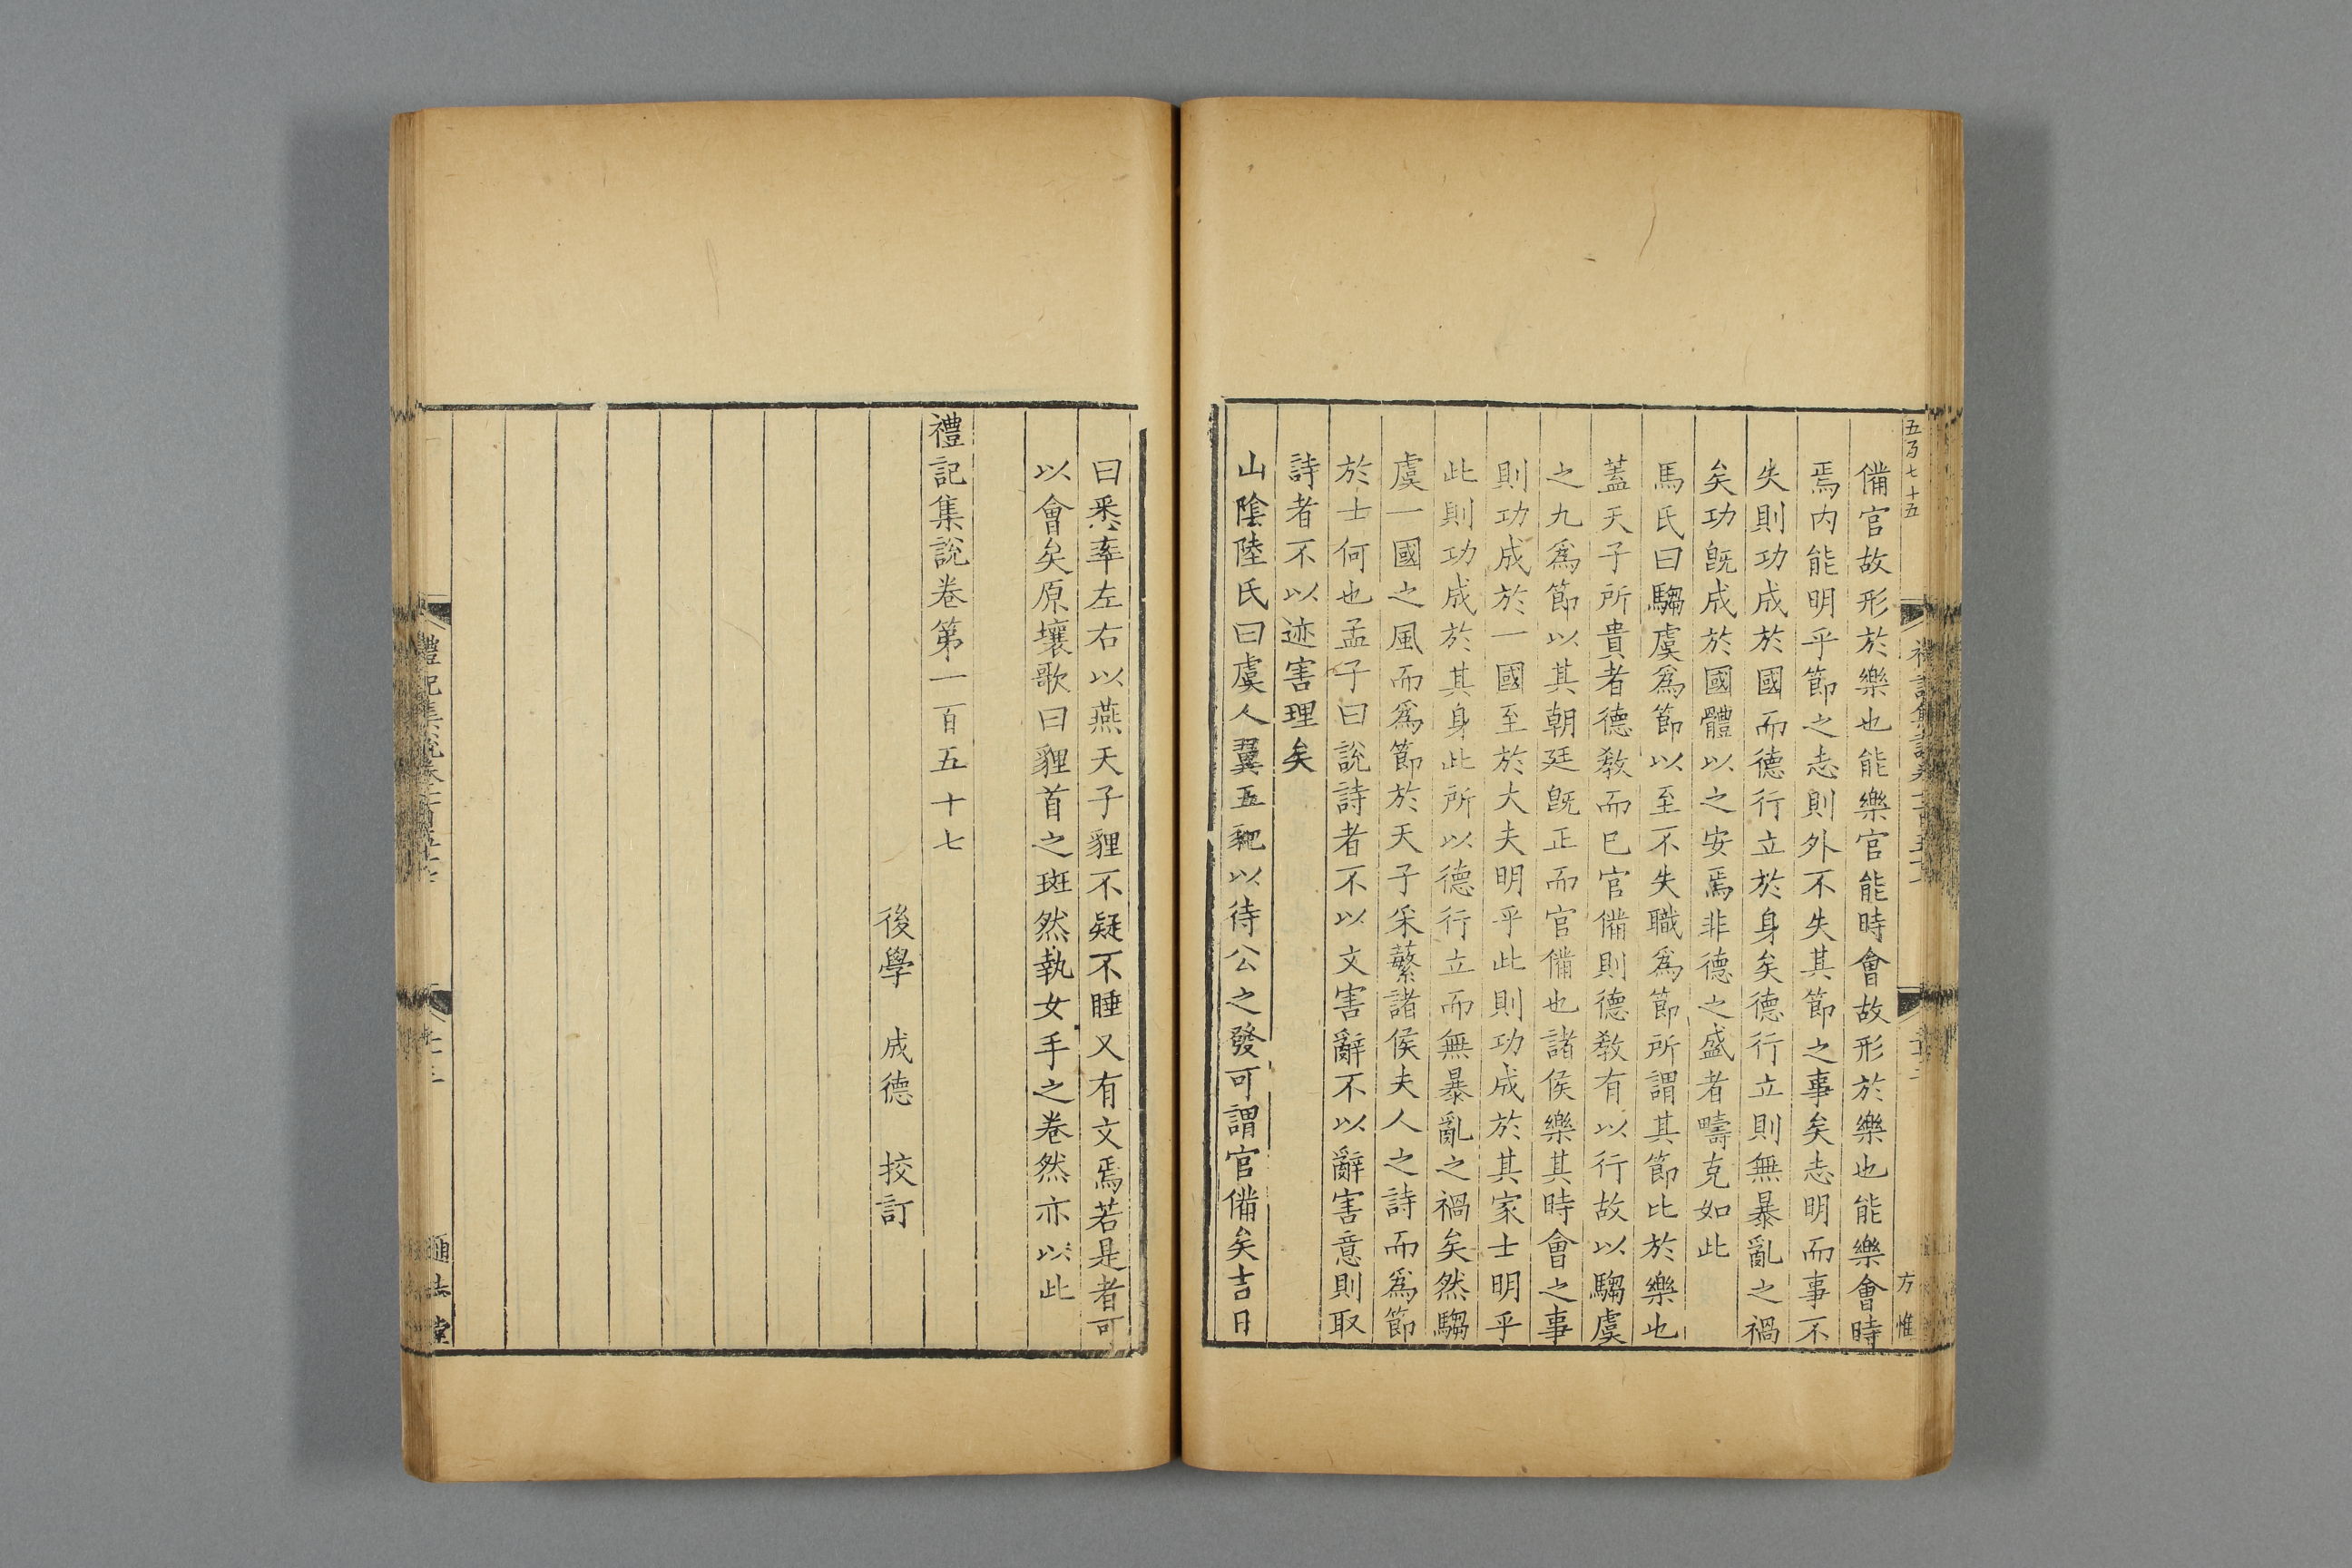 五百七十五
備官故形於樂也能樂官能時會故形於樂也能樂會時
焉内能明乎節之志則外不失其節之事矣志明而事不
失則功成於國而德行立於身矣德行立則無暴亂之禍
矣功旣成於國體以之安焉非德之盛者疇克如此
馬氏曰騶虞爲節以至不失職爲節所謂其節比於樂也
蓋天子所貴者德敎而已官備則德敎有以行故以騶虞
之九爲節以其朝廷旣正而官備也諸侯樂其時會之事
則功成於一國至於大夫明乎此則功成於其家士明乎
此則功成於其身此所以德行立而無暴亂之禍矣然騶
虞一國之風而爲節於天子采蘩諸侯夫人之詩而爲節
於士何也孟子曰說詩者不以文害辭不以辭害意則取
詩者不以迹害理矣
山陰陸氏曰虞人翼五豝以待公之發可謂官備矣吉日
方惟
曰悉率左右以燕天子貍不疑不睡又有文焉若是者可
以會矣原壤歌曰貍首之斑然執女手之卷然亦以此
禮記集說卷第一百五十七
後學 成德 挍訂
禮記集說卷一百五十七
通志堂